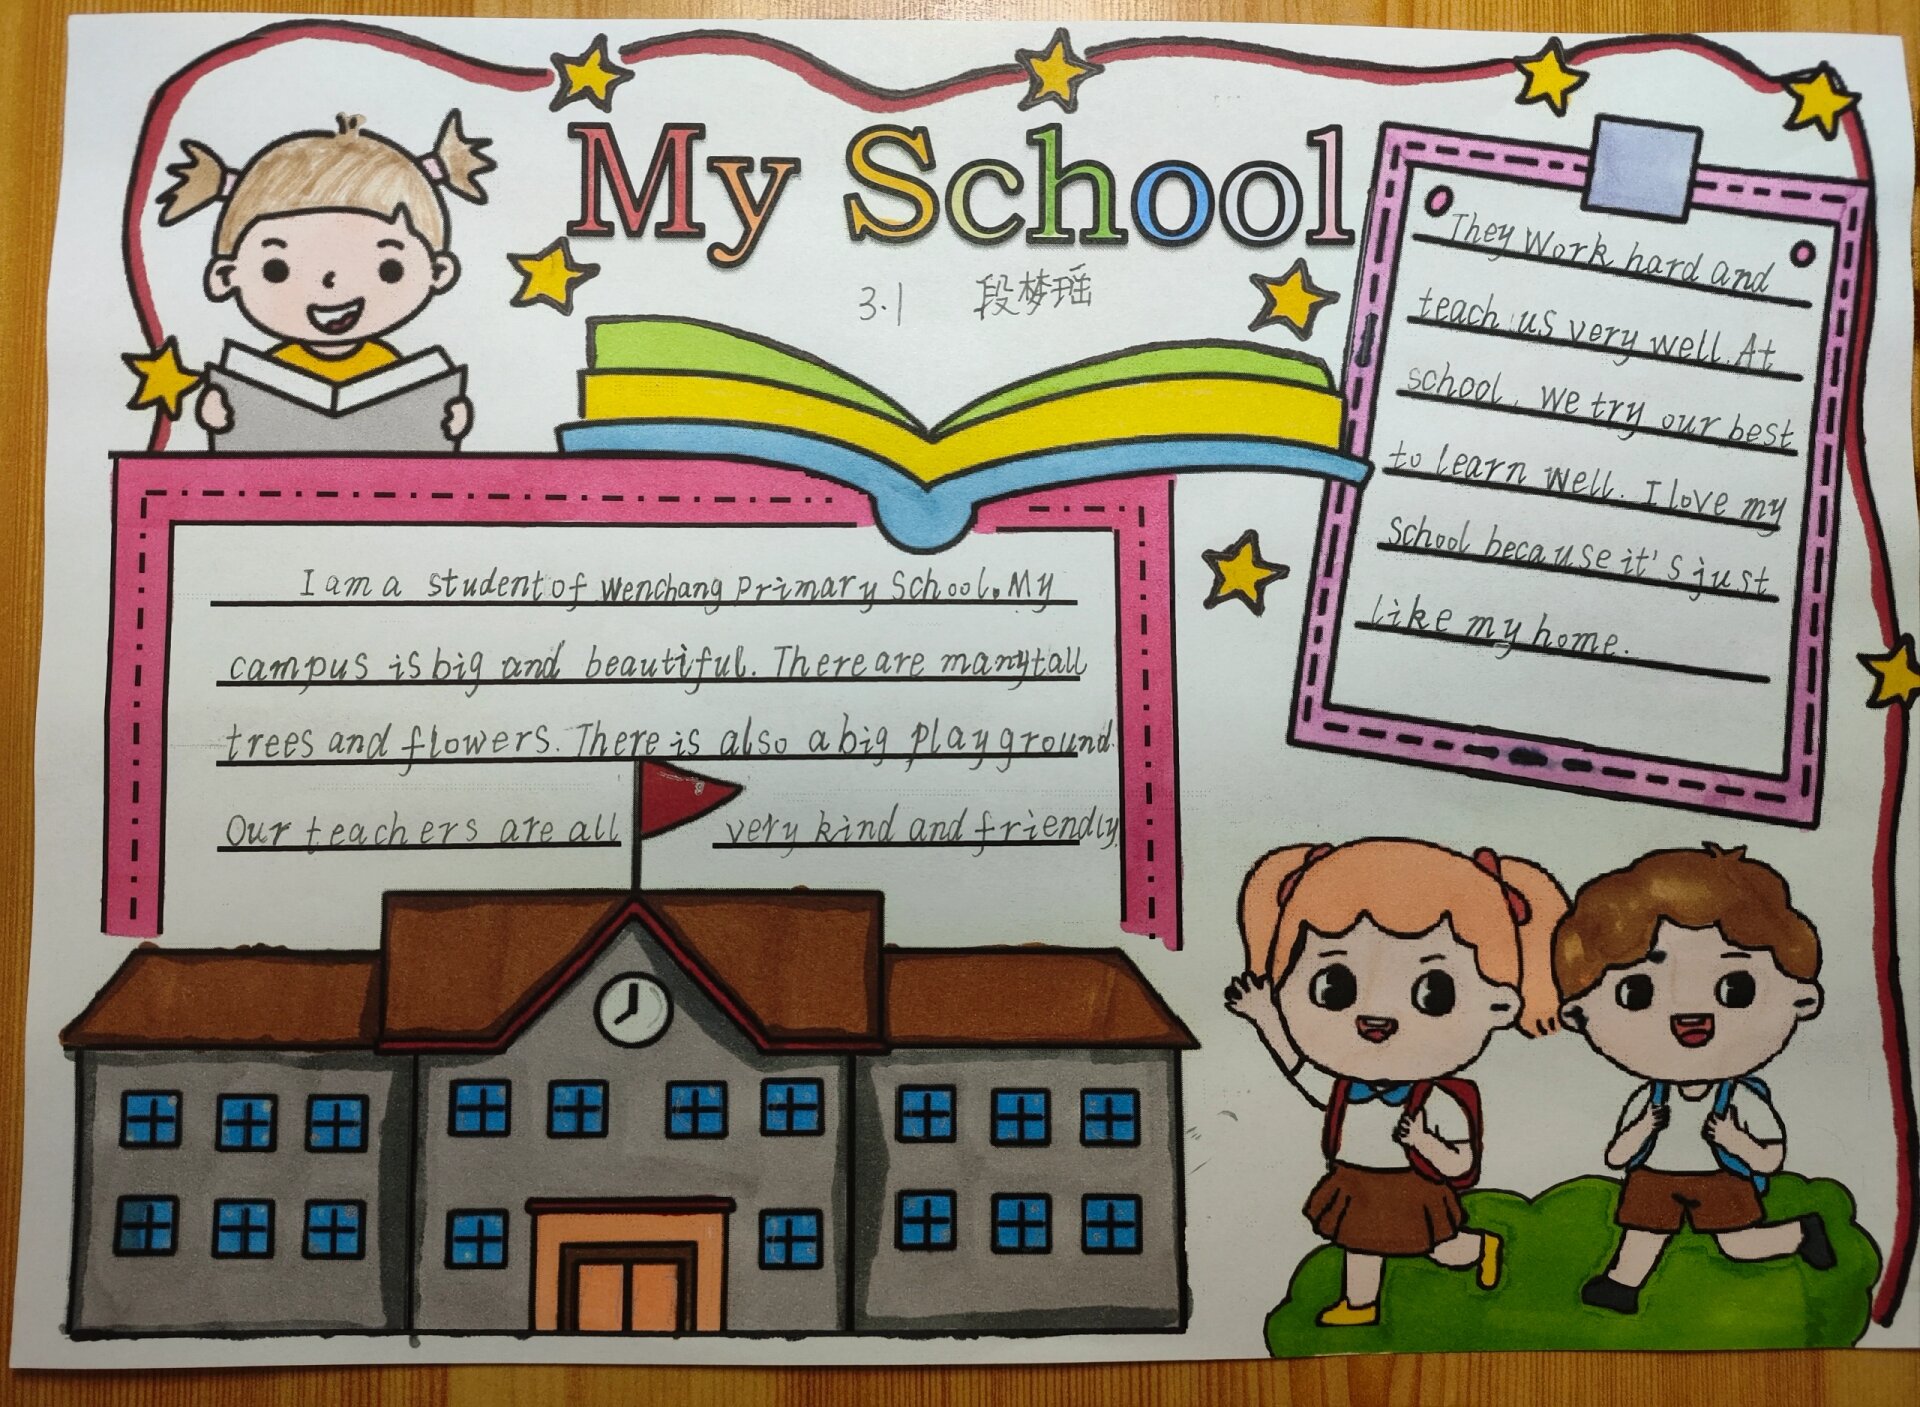 My School
3.1 段梦瑶
I am a student of Wenchang Primary School. My
campus is big and beautiful. There are many tall
trees and flowers. There is also a big playground.
Our teachers are all very kind and friendly.
They Work hard and
teach us very well. At
school, we try our best
to learn well. I love my
school because it's just
like my home.